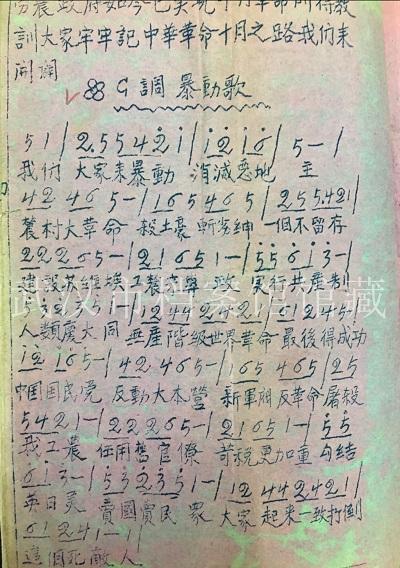 訓大家牢牢記中華革命十月之路我們来
開闢
G調 暴動歌
5 1 | 2.5 5 4 2 1 | 1 2 1 6 | 5 - |
我們 大家来暴動 消滅惡地 主
4 2 4 6 5 - | 1 6 5 4 6 5 | 2 5 5.4 2 1 |
農村大革命 殺土豪 斬劣紳 一個不留存
2 2 2 6 5 - | 2 1 6 5 1 - | 5 5 6 1 3 - |
建設蘇維埃 工農 寧 致 實行共產制
武汉市档案馆馆藏
人類慶大同 無產階級世界革命 最後得成功
1 2 1 6 5 - | 4 2 4 6 5 - | 1 6 5 4 6 5 | 2 5
中國國民党 反動大本營 新軍閥 反革命 屠殺
5 4 2 1 - | 2 2 2 6 5 - | 2 1 6 5 1 - | 5 5
我工農 任用舊官僚 苛税更加重 勾结
6 1 3 - | 5 3 2 3 5 1 - | 1 2 4 4 2 4 2 1 |
英日美 賣國賣民 衆 大家 起来一致打倒
6 1 2 4 1 - |
這個死敵人